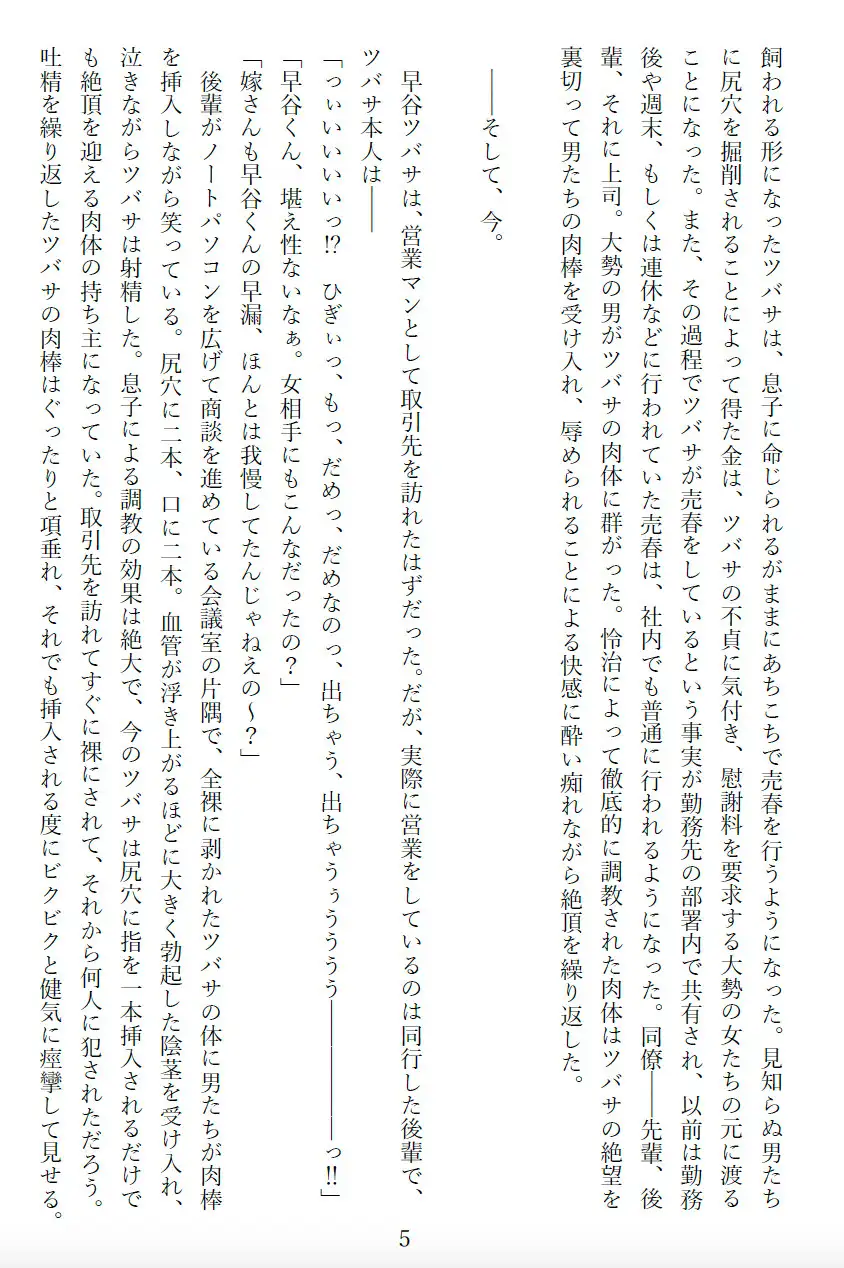 飼われる形になったツバサは、息子に命じられるがままにあちこちで売春を行うようになった。見知らぬ男たち
に尻穴を掘削されることによって得た金は、ツバサの不貞に気付き、慰謝料を要求する大勢の女たちの元に渡る
ことになった。また、その過程でツバサが売春をしているという事実が勤務先の部署内で共有され、以前は勤務
後や週末、もしくは連休などに行われていた売春は、社内でも普通に行われるようになった。同僚――先輩、後
輩、それに上司。大勢の男がツバサの肉体に群がった。怜治によって徹底的に調教された肉体はツバサの絶望を
裏切って男たちの肉棒を受け入れ、辱められることによる快感に酔い痴れながら絶頂を繰り返した。
――そして、今。
早谷ツバサは、営業マンとして取引先を訪れたはずだった。だが、実際に営業をしているのは同行した後輩で、
ツバサ本人は――
「っぃいいいいっ!?　ひぎぃっ、もっ、だめっ、だめなのっ、出ちゃう、出ちゃうぅうううう――――――っ!!」
「早谷くん、堪え性ないなぁ。女相手にもこんなだったの？」
「嫁さんも早谷くんの早漏、ほんとは我慢してたんじゃねえの～？」
後輩がノートパソコンを広げて商談を進めている会議室の片隅で、全裸に剥かれたツバサの体に男たちが肉棒
を挿入しながら笑っている。尻穴に二本、口に二本。血管が浮き上がるほどに大きく勃起した陰茎を受け入れ、
泣きながらツバサは射精した。息子による調教の効果は絶大で、今のツバサは尻穴に指を一本挿入されるだけで
も絶頂を迎える肉体の持ち主になっていた。取引先を訪れてすぐに裸にされて、それから何人に犯されただろう。
吐精を繰り返したツバサの肉棒はぐったりと項垂れ、それでも挿入される度にビクビクと健気に痙攣して見せる。
5